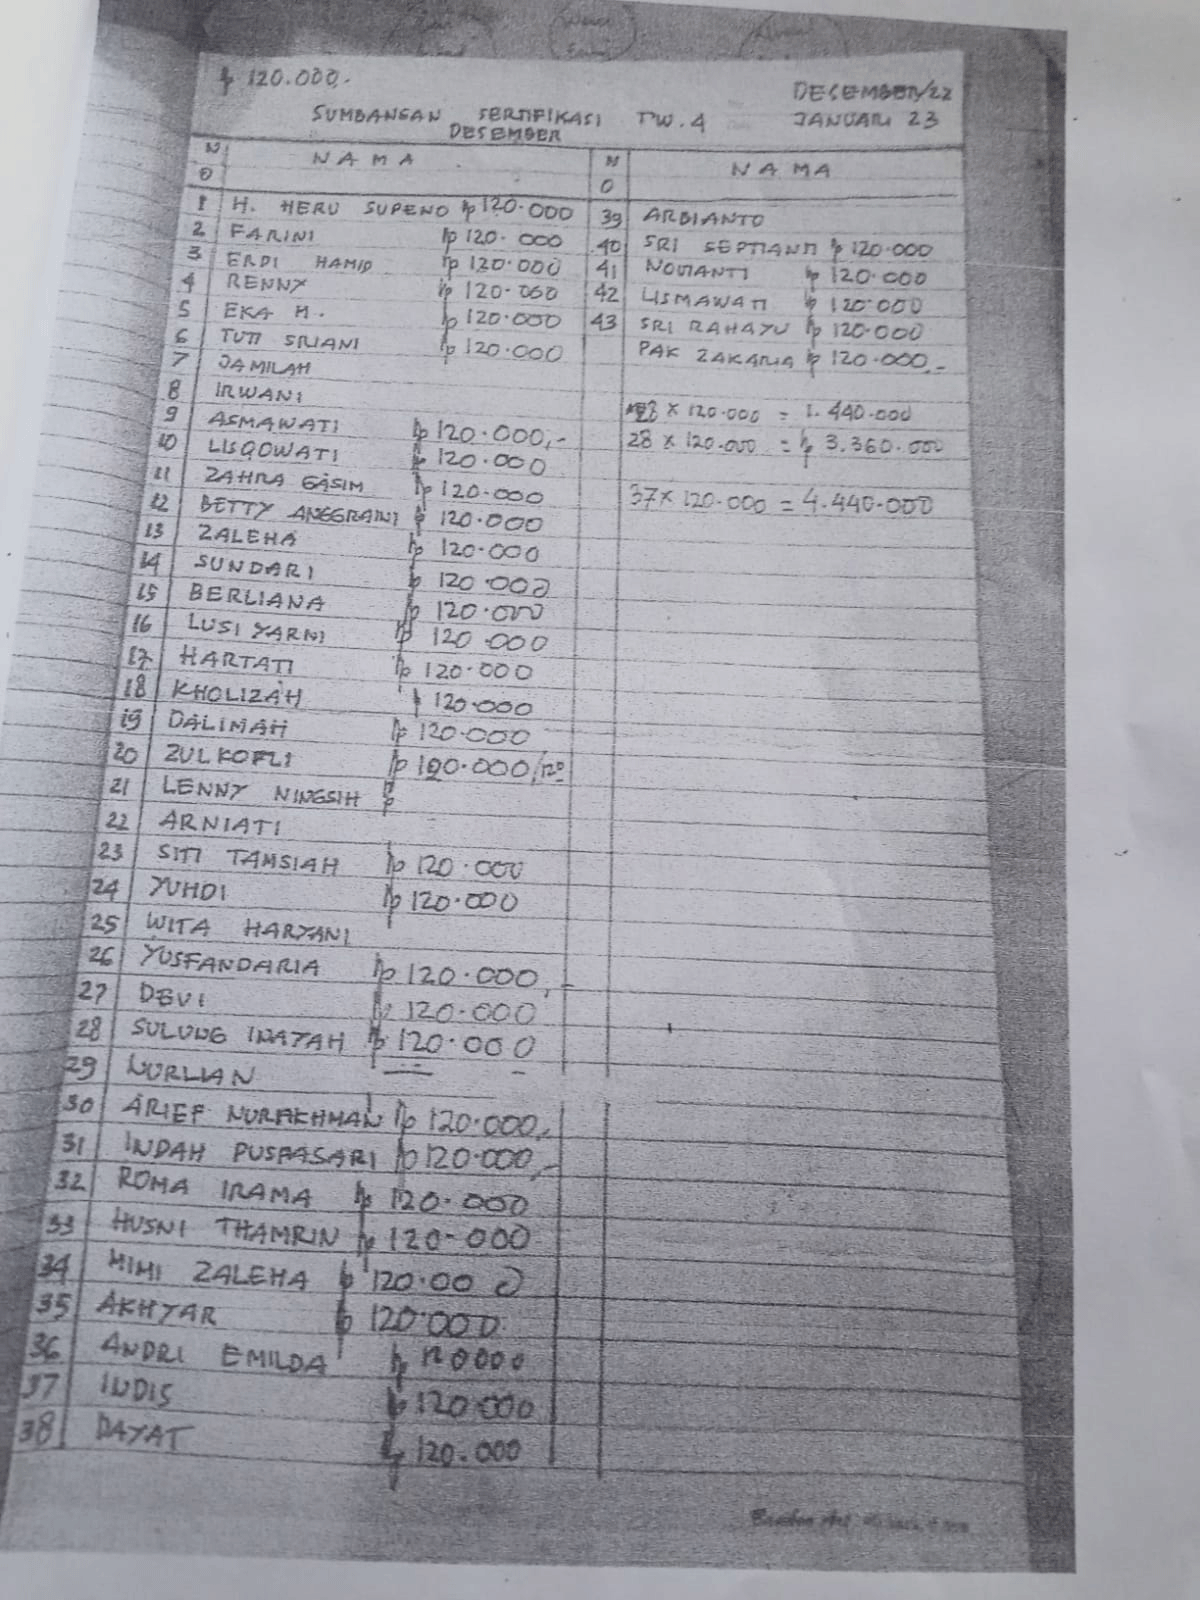 Rp 120.000,-
DESEMBER/22
SUMBANGAN SERTIFIKASI TW.4 JANUARI 23
DESEMBER
NO NAMA NO NAMA
1 H. HERU SUPENO Rp 120.000
2 FARINI Rp 120.000
3 ERDI HAMID Rp 120.000
4 RENNY Rp 120.000
5 EKA M. Rp 120.000
6 TUTI SRIANI Rp 120.000
7 JAMILAH
8 IRWANI
9 ASMAWATI Rp 120.000,-
10 LISQOWATI Rp 120.000
11 ZAHRA GASIM Rp 120.000
12 BETTY ANGGRAINI Rp 120.000
13 ZALEHA Rp 120.000
14 SUNDARI Rp 120.000
15 BERLIANA Rp 120.000
16 LUSI YARNI Rp 120.000
17 HARTATI Rp 120.000
18 KHOLIZAH Rp 120.000
19 DALIMAH Rp 120.000
20 ZULKOFLI Rp 120.000/120
21 LENNY NINGSIH Rp
22 ARNIATI
23 SITI TAMSIAH Rp 120.000
24 YUHDI Rp 120.000
25 WITA HARYANI
26 YUSFANDARIA Rp 120.000,-
27 DEVI Rp 120.000
28 SULUNG INAYAH Rp 120.000
29 NURLIAN
30 ARIEF NURAKHMAN Rp 120.000,-
31 INDAH PUSPASARI Rp 120.000,-
32 ROMA IRAMA Rp 120.000
33 HUSNI THAMRIN Rp 120.000
34 MIMI ZALEHA Rp 120.000
35 AKHYAR Rp 120.000
36 ANDRI EMILDA Rp 120000
37 INDIS Rp 120.000
38 DAYAT Rp 120.000
39 ARBIANTO
40 SRI SEPTIANTI Rp 120.000
41 NOVIANTI Rp 120.000
42 LISMAWATI Rp 120.000
43 SRI RAHAYU Rp 120.000
PAK ZAKARIA Rp 120.000,-
x 120.000 = 1.440.000
28 x 120.000 = Rp 3.360.000
37 x 120.000 = 4.440.000